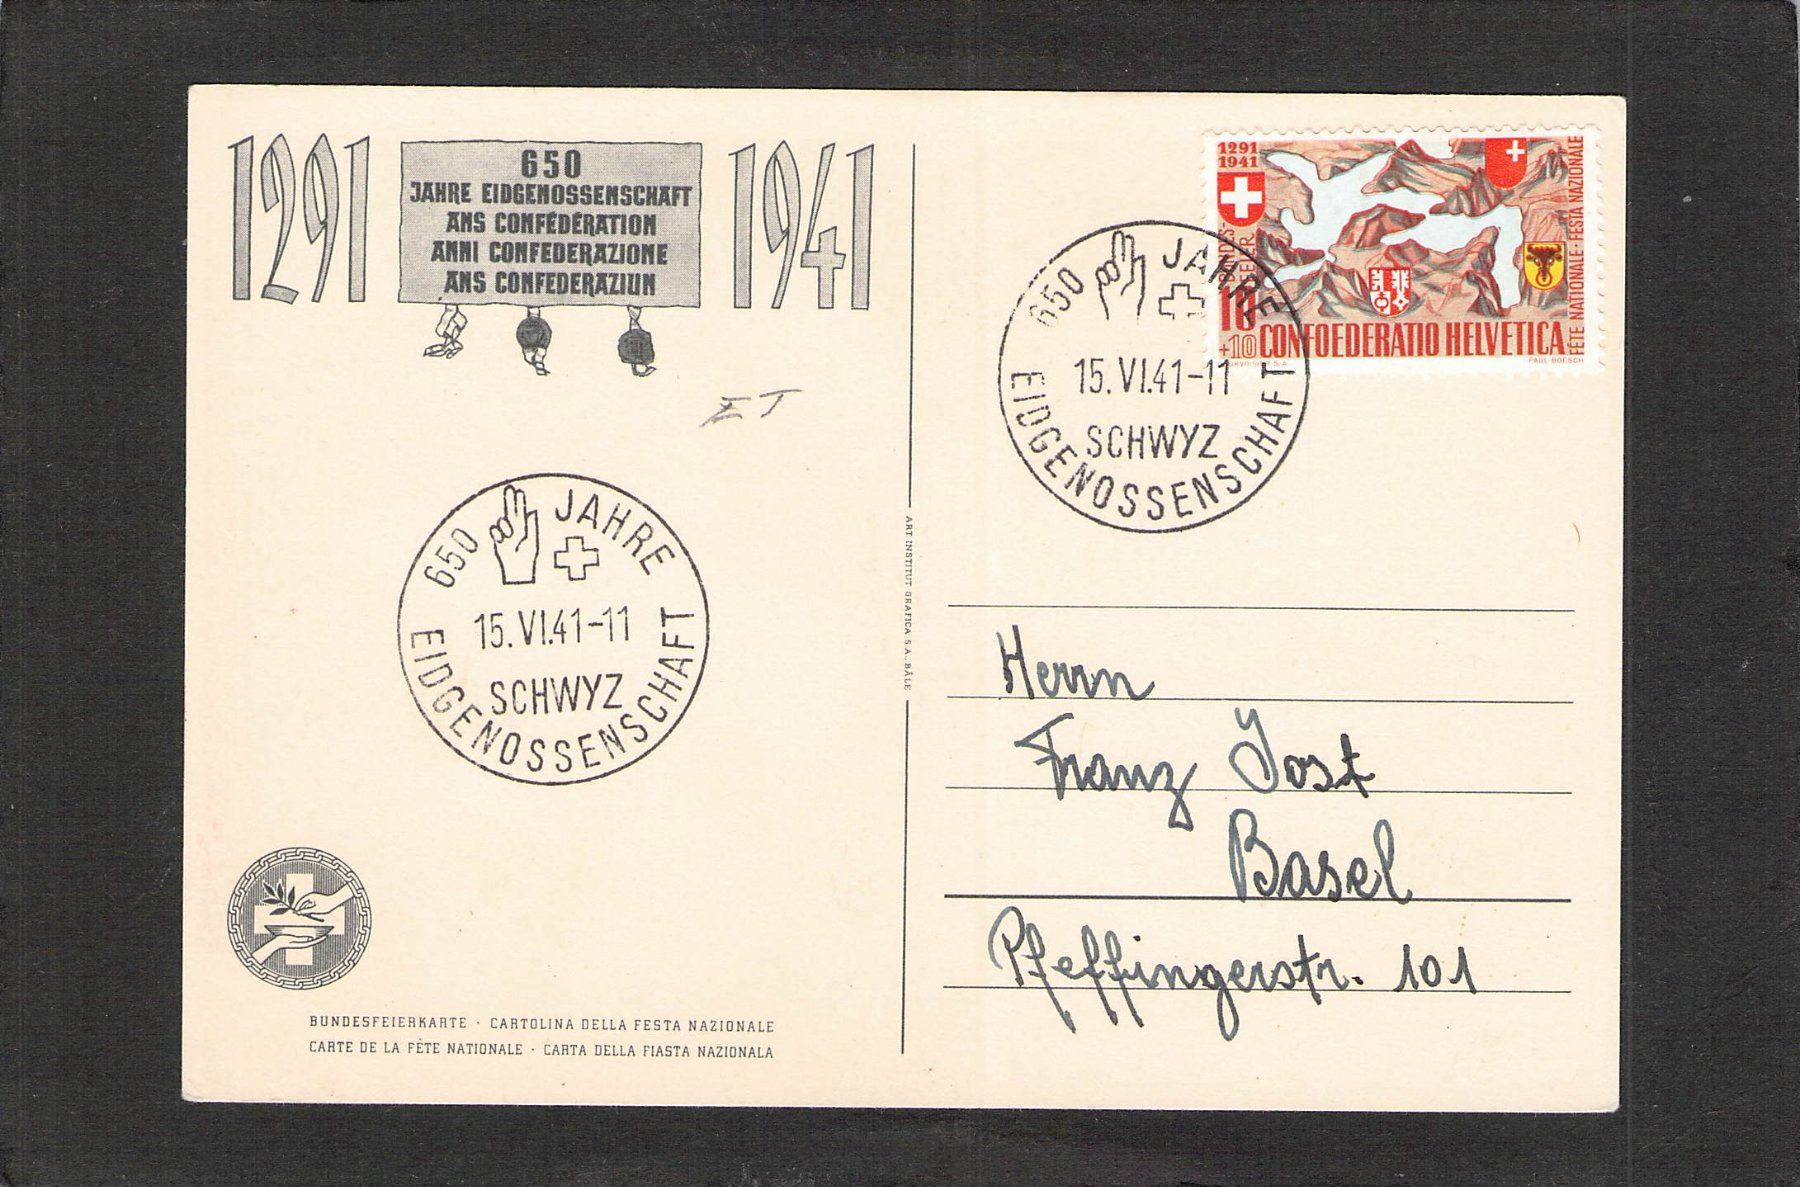 1291
650
JAHRE EIDGENOSSENSCHAFT
ANS CONFÉDÉRATION
ANNI CONFEDERAZIONE
ANS CONFEDERAZIUN
1941
650 JAHRE
15.VI.41-11
SCHWYZ
EIDGENOSSENSCHAFT
BUNDESFEIERKARTE · CARTOLINA DELLA FESTA NAZIONALE
CARTE DE LA FÊTE NATIONALE · CARTA DELLA FIASTA NAZIONALA
ART INSTITUT GRAFICA S.A., BÂLE
1291
1941
10
+10
CONFOEDERATIO HELVETICA
FÊTE NATIONALE · FESTA NAZIONALE
PAUL BOESCH
650 JAHRE
15.VI.41-11
SCHWYZ
EIDGENOSSENSCHAFT
Herrn
Franz Jost
Basel
Pfeffingerstr. 101